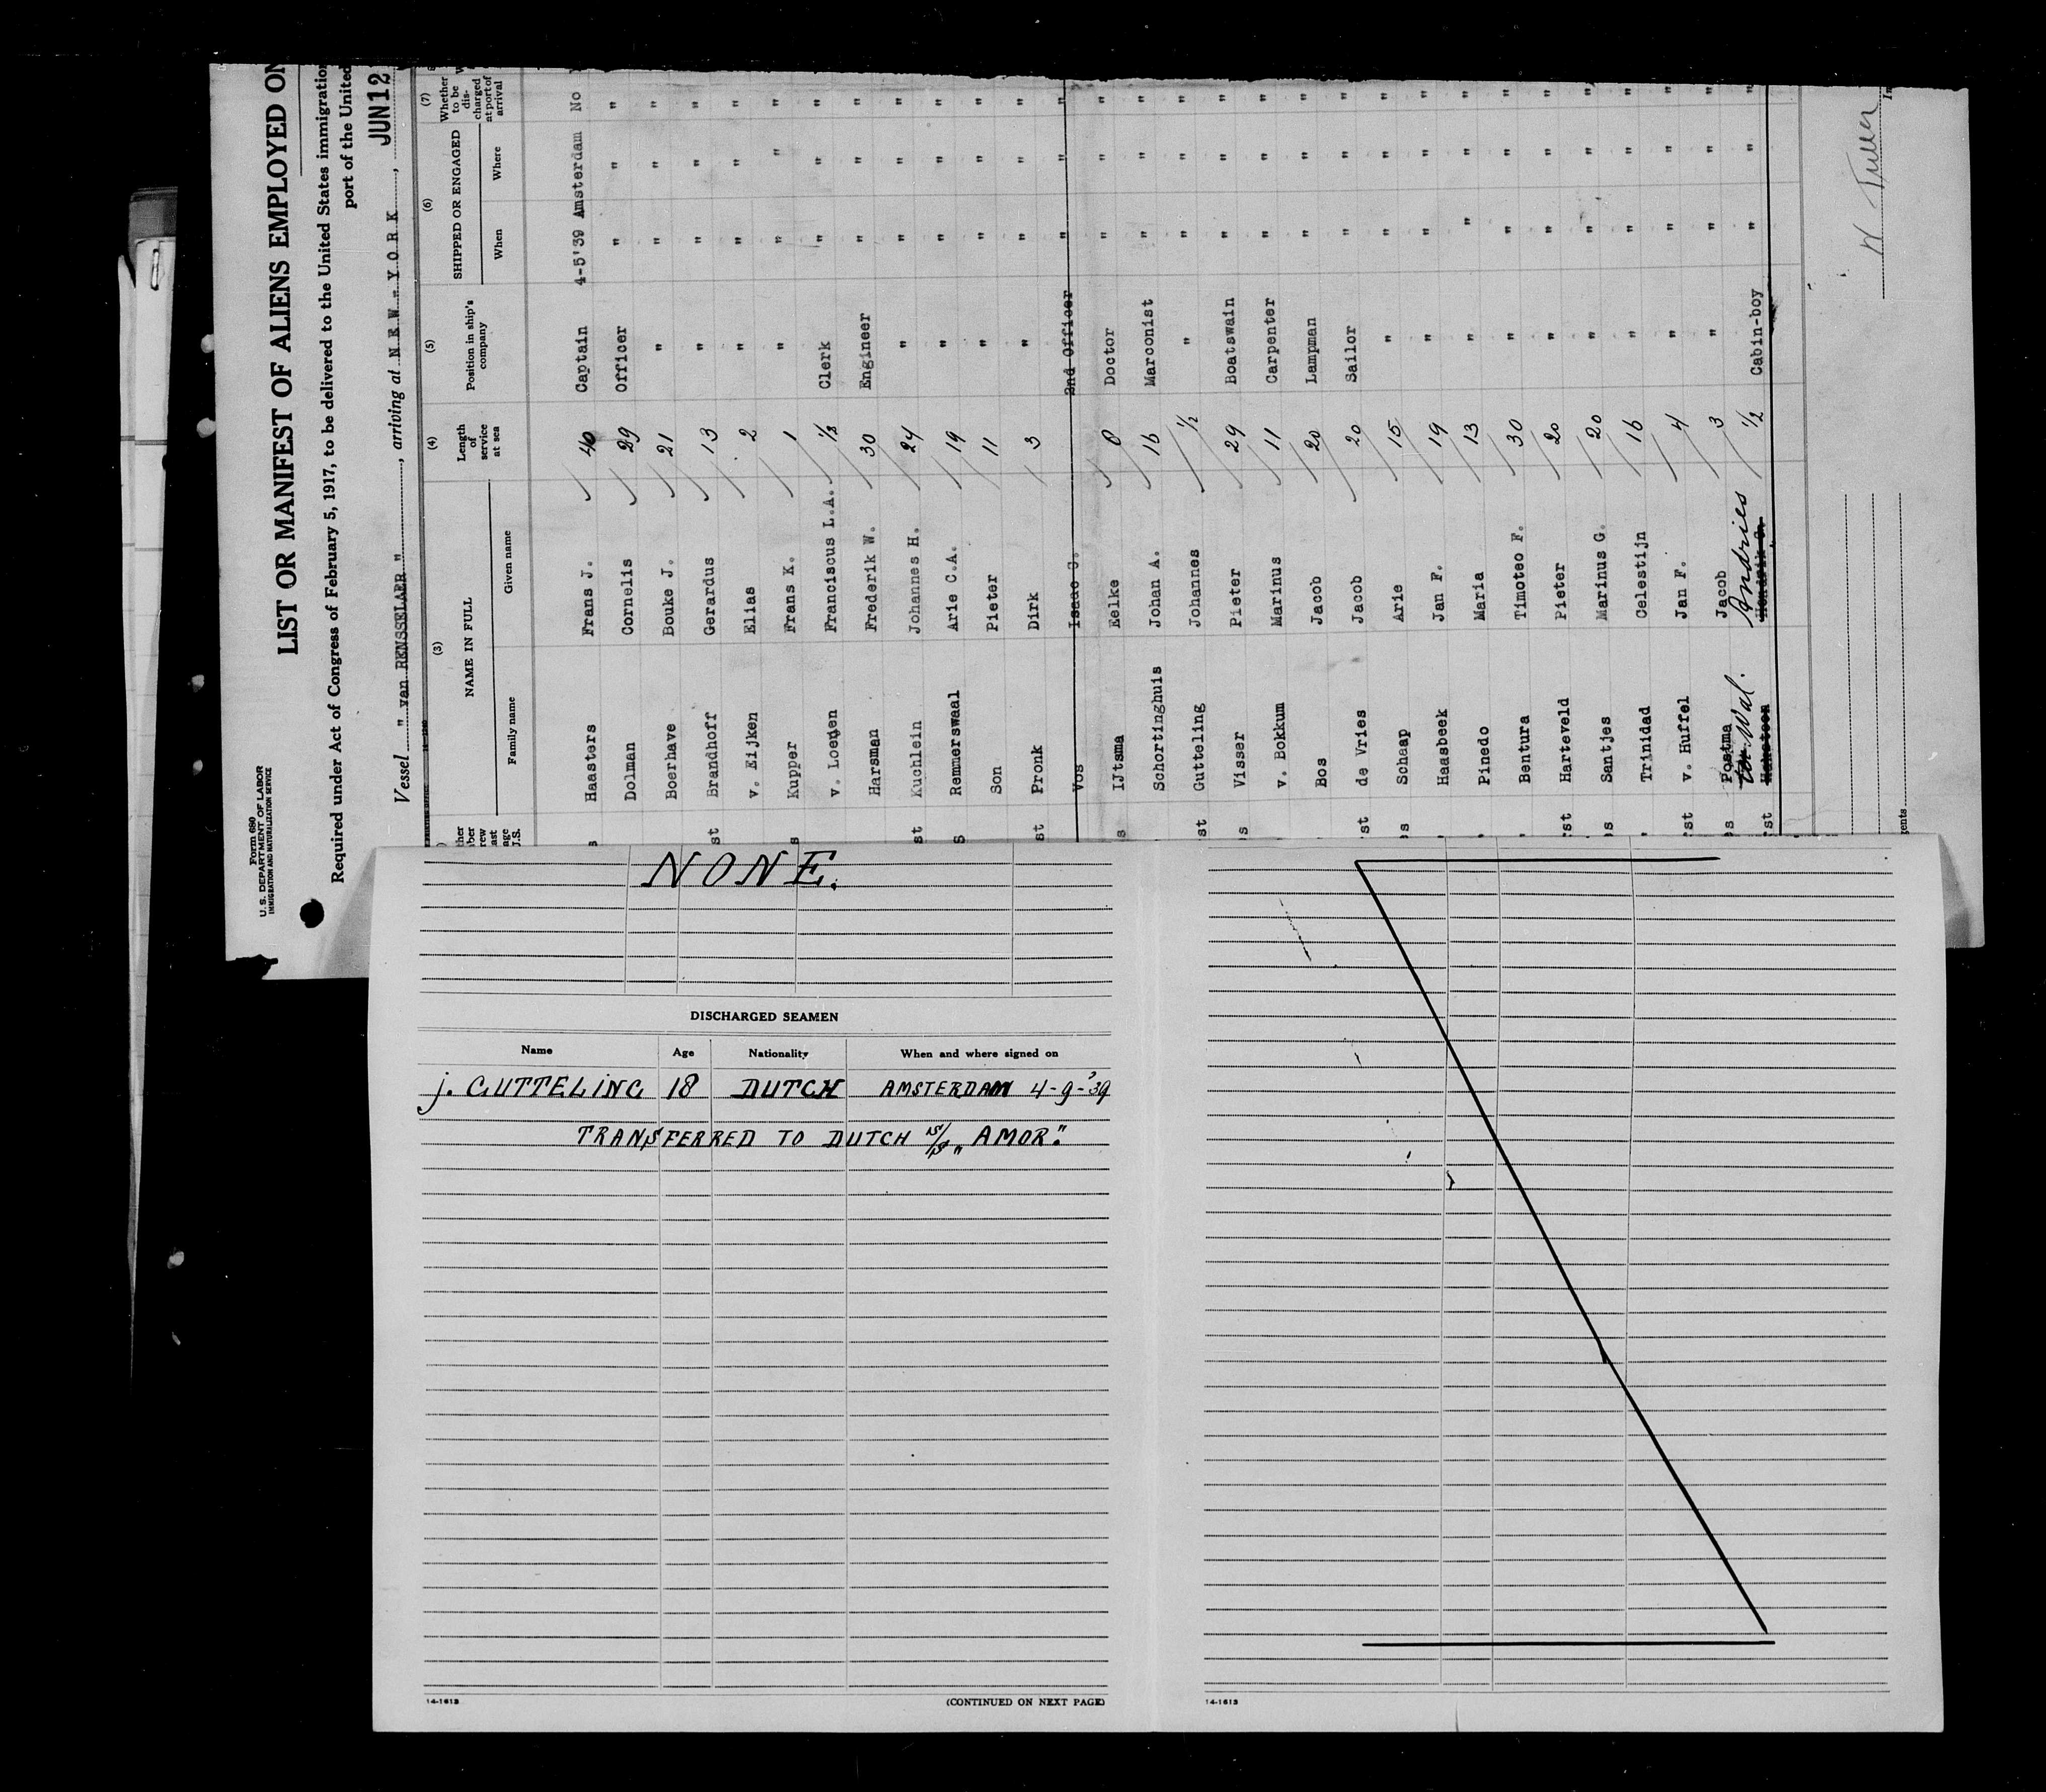 Form 680
U. S. DEPARTMENT OF LABOR
IMMIGRATION AND NATURALIZATION SERVICE
LIST OR MANIFEST OF ALIENS EMPLOYED ON
Required under Act of Congress of February 5, 1917, to be delivered to the United States immigration
port of the United
Vessel " van RENSSELAER ", arriving at NEW - YORK, JUN 12
(3) (4) (5) (6) (7)
NAME IN FULL Length of service at sea Position in ship's company SHIPPED OR ENGAGED Whether to be discharged at port of arrival
Family name Given name When Where
Haasters Frans J. 40 Captain 4-5'39 Amsterdam No
Dolman Cornelis 29 Officer " " "
Boerhave Bouke J. 21 " " " "
st Brandhoff Gerardus 13 " " " "
v. Eijken Elias 2 " " " "
s Kupper Frans K. 1 " " " "
v. Loenen Franciscus L.A. ½ Clerk " " "
Harsman Frederik W. 30 Engineer " " "
st Kuchlein Johannes H. 24 " " " "
s Remmerswaal Arie C.A. 19 " " " "
Son Pieter 11 " " " "
st Pronk Dirk 3 " " " "
Vos Isaac 2nd Officer " " "
s IJtsma Eelke 8 Doctor " " "
Schortinghuis Johan A. 16 Marconist " " "
st Gutteling Johannes ½ " " " "
s Visser Pieter 29 Boatswain " " "
v. Bokkum Marinus 11 Carpenter " " "
Bos Jacob 20 Lampman " " "
st de Vries Jacob 20 Sailor " " "
s Schaap Arie 15 " " " "
' Haasbeek Jan F. 19 " " " "
Pinedo Maria 13 " " " "
' Bentura Timoteo F. 30 " " " "
st Harteveld Pieter 20 " " " "
s Santjes Marinus G. 20 " " " "
' Trinidad Celestijn 16 " " " "
st v. Huffel Jan F. 4 " " " "
s Postma Jacob 3 " " " "
st Wal. Andries ½ Cabin-boy " " "
NONE.
DISCHARGED SEAMEN
Name Age Nationality When and where signed on
j. GUTTELING 18 DUTCH AMSTERDAM 4-9-'39
TRANSFERRED TO DUTCH S/S „ AMOR."
14-1613 (CONTINUED ON NEXT PAGE)
14-1613